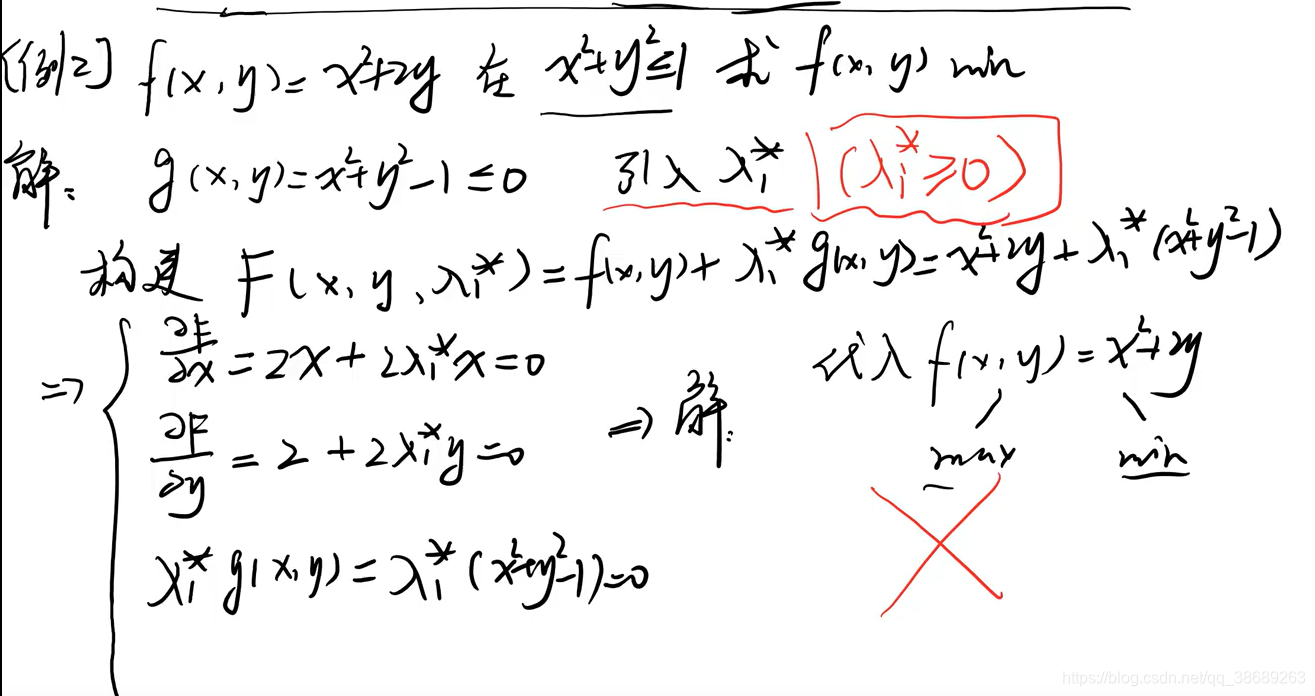 [例2] f(x,y)=x²+2y 在 x²+y²≤1 求 f(x,y) min
解: g(x,y)=x²+y²-1≤0 引入 λ₁* (λ₁*≥0)
构建 F(x,y,λ₁*)=f(x,y)+λ₁*g(x,y)=x²+2y+λ₁*(x²+y²-1)
⇒ { ∂F/∂x=2x+2λ₁*x=0
∂F/∂y=2+2λ₁*y=0
λ₁*g(x,y)=λ₁*(x²+y²-1)=0
⇒ 解:
代入 f(x,y)=x²+2y
max min
https://blog.csdn.net/qq_38689263